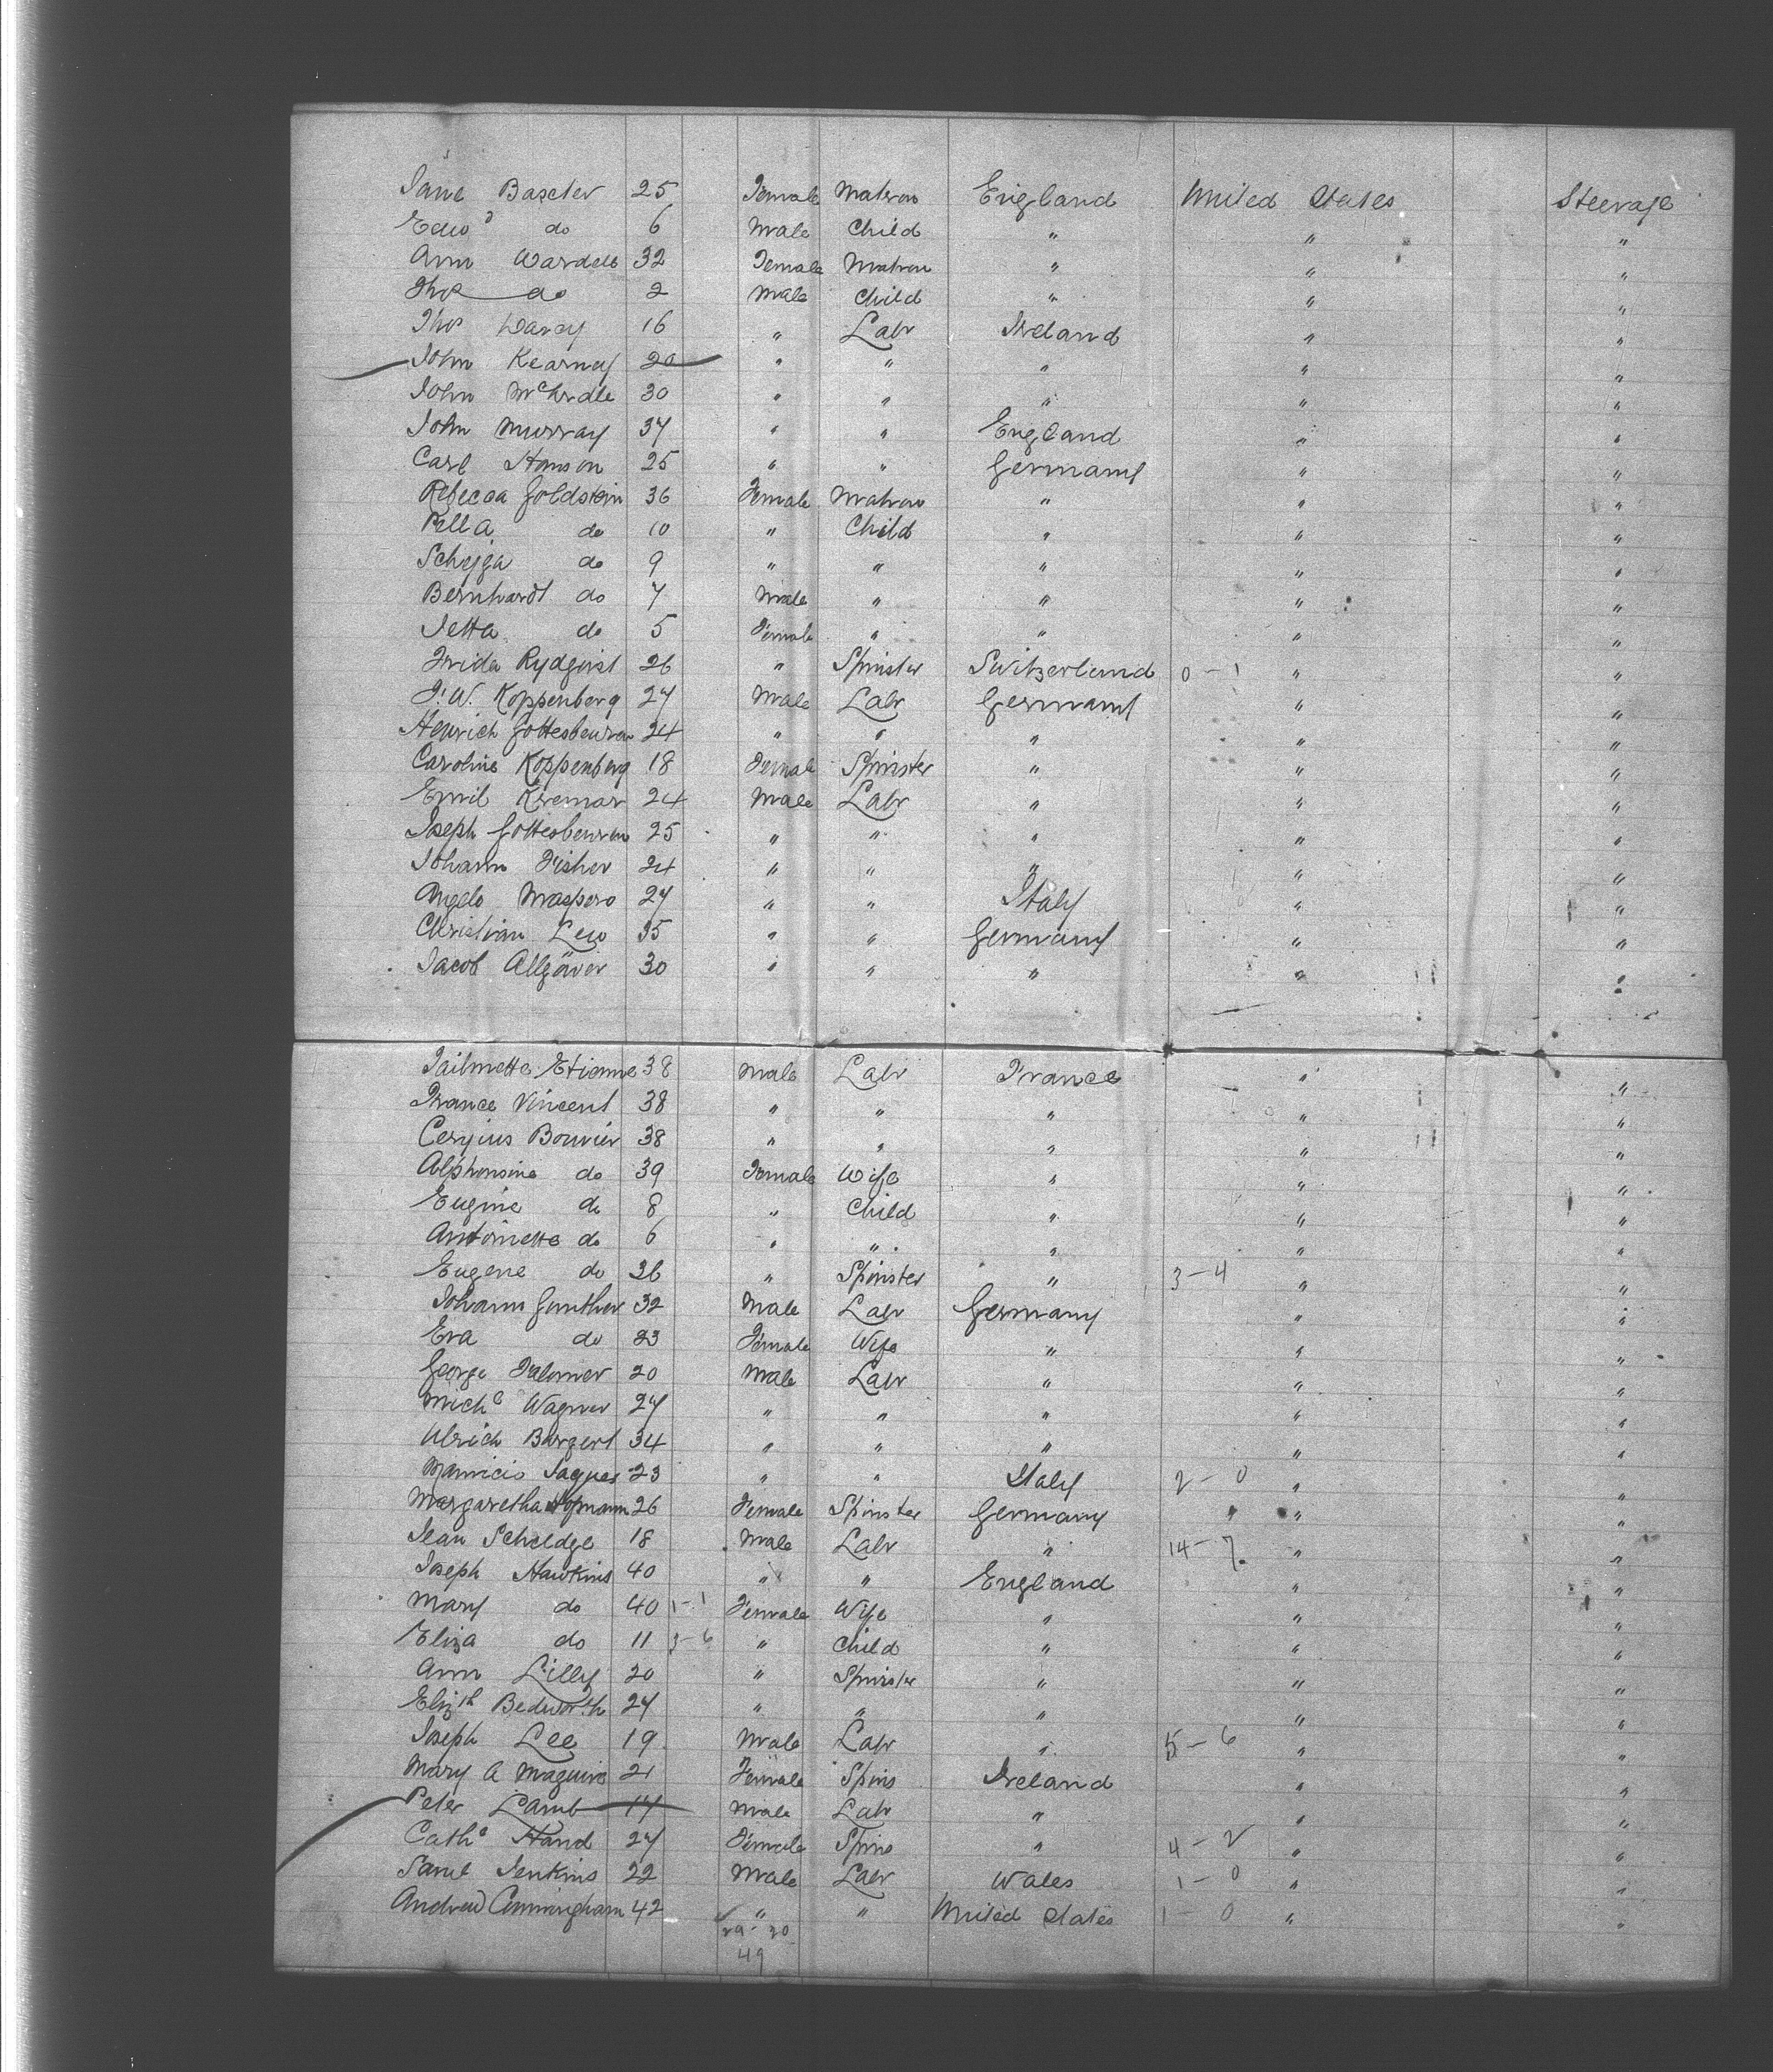 Jane Baxter 25 Female Matron England United States Steerage
Edwd do 6 Male Child " " "
Ann Wardell 32 Female Matron " " "
Thos do 2 Male Child " " "
Thos Darcy 16 " Labr Ireland " "
John Kearney 20 " " " " "
John McArdle 30 " " " " "
John Murray 37 " " England " "
Carl Hanson 25 " " Germany " "
Rebecca Goldstein 36 Female Matron " " "
Pella do 10 " Child " " "
Schejga do 9 " " " " "
Bernhardt do 7 Male " " " "
Jetta do 5 Female " " " "
Frida Rydqvist 26 " Spinster Switzerland 0-1 " "
F. W. Koppenberg 27 Male Labr Germany " "
Heinrich 24 " " " " "
Caroline Koppenberg 18 Female Spinster " " "
Emil Kremar 24 Male Labr " " "
Joseph 25 " " " " "
Johann Fisher 24 " " " " "
Angelo Maspero 27 " " Italy " "
Christian Lew 35 " " Germany " "
Jacob Allgäver 30 " " " " "
Etienne 38 Male Labr France " "
France Vincent 38 " " " " "
Bouvier 38 " " " " "
Alphonsine do 39 Female Wife " " "
Eugine do 8 " Child " " "
Antoinette do 6 " " " " "
Eugene do 26 " Spinster " 3-4 " "
Johann Gunther 32 Male Labr Germany " "
Eva do 23 Female Wife " " "
George 20 Male Labr " " "
Michl Wagner 27 " " " " "
Ulrich Burgert 34 " " " " "
Mauricio Jaques 23 " " Italy 2-0 " "
Margaretha 26 Female Spinster Germany " " "
Jean Scheldge 18 Male Labr " 14-7 " "
Joseph Hawkins 40 " " England " "
Mary do 40 1-1 Female Wife " " "
Eliza do 11 3-6 " Child " " "
Ann Lilly 20 " Spinster " " "
Elizth Bedworth 27 " " " " "
Joseph Lee 19 Male Labr " 5-6 " "
Mary A Maguire 21 Female Spins Ireland " "
Peter Lamb 17 Male Labr " " "
Cathe Hand 27 Female Spins " 4-2 " "
Saml Jenkins 22 Male Labr Wales 1-0 " "
Andrew Cunningham 42 " " United States 1-0 " "
29-20
49